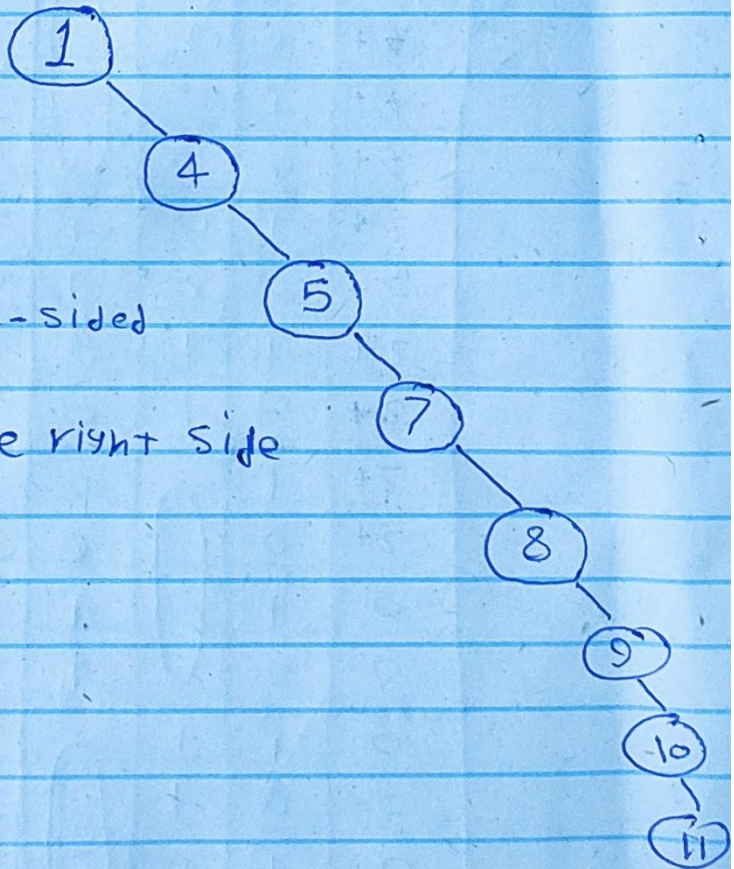 1
4
5
-sided
7
e right side
8
9
10
11